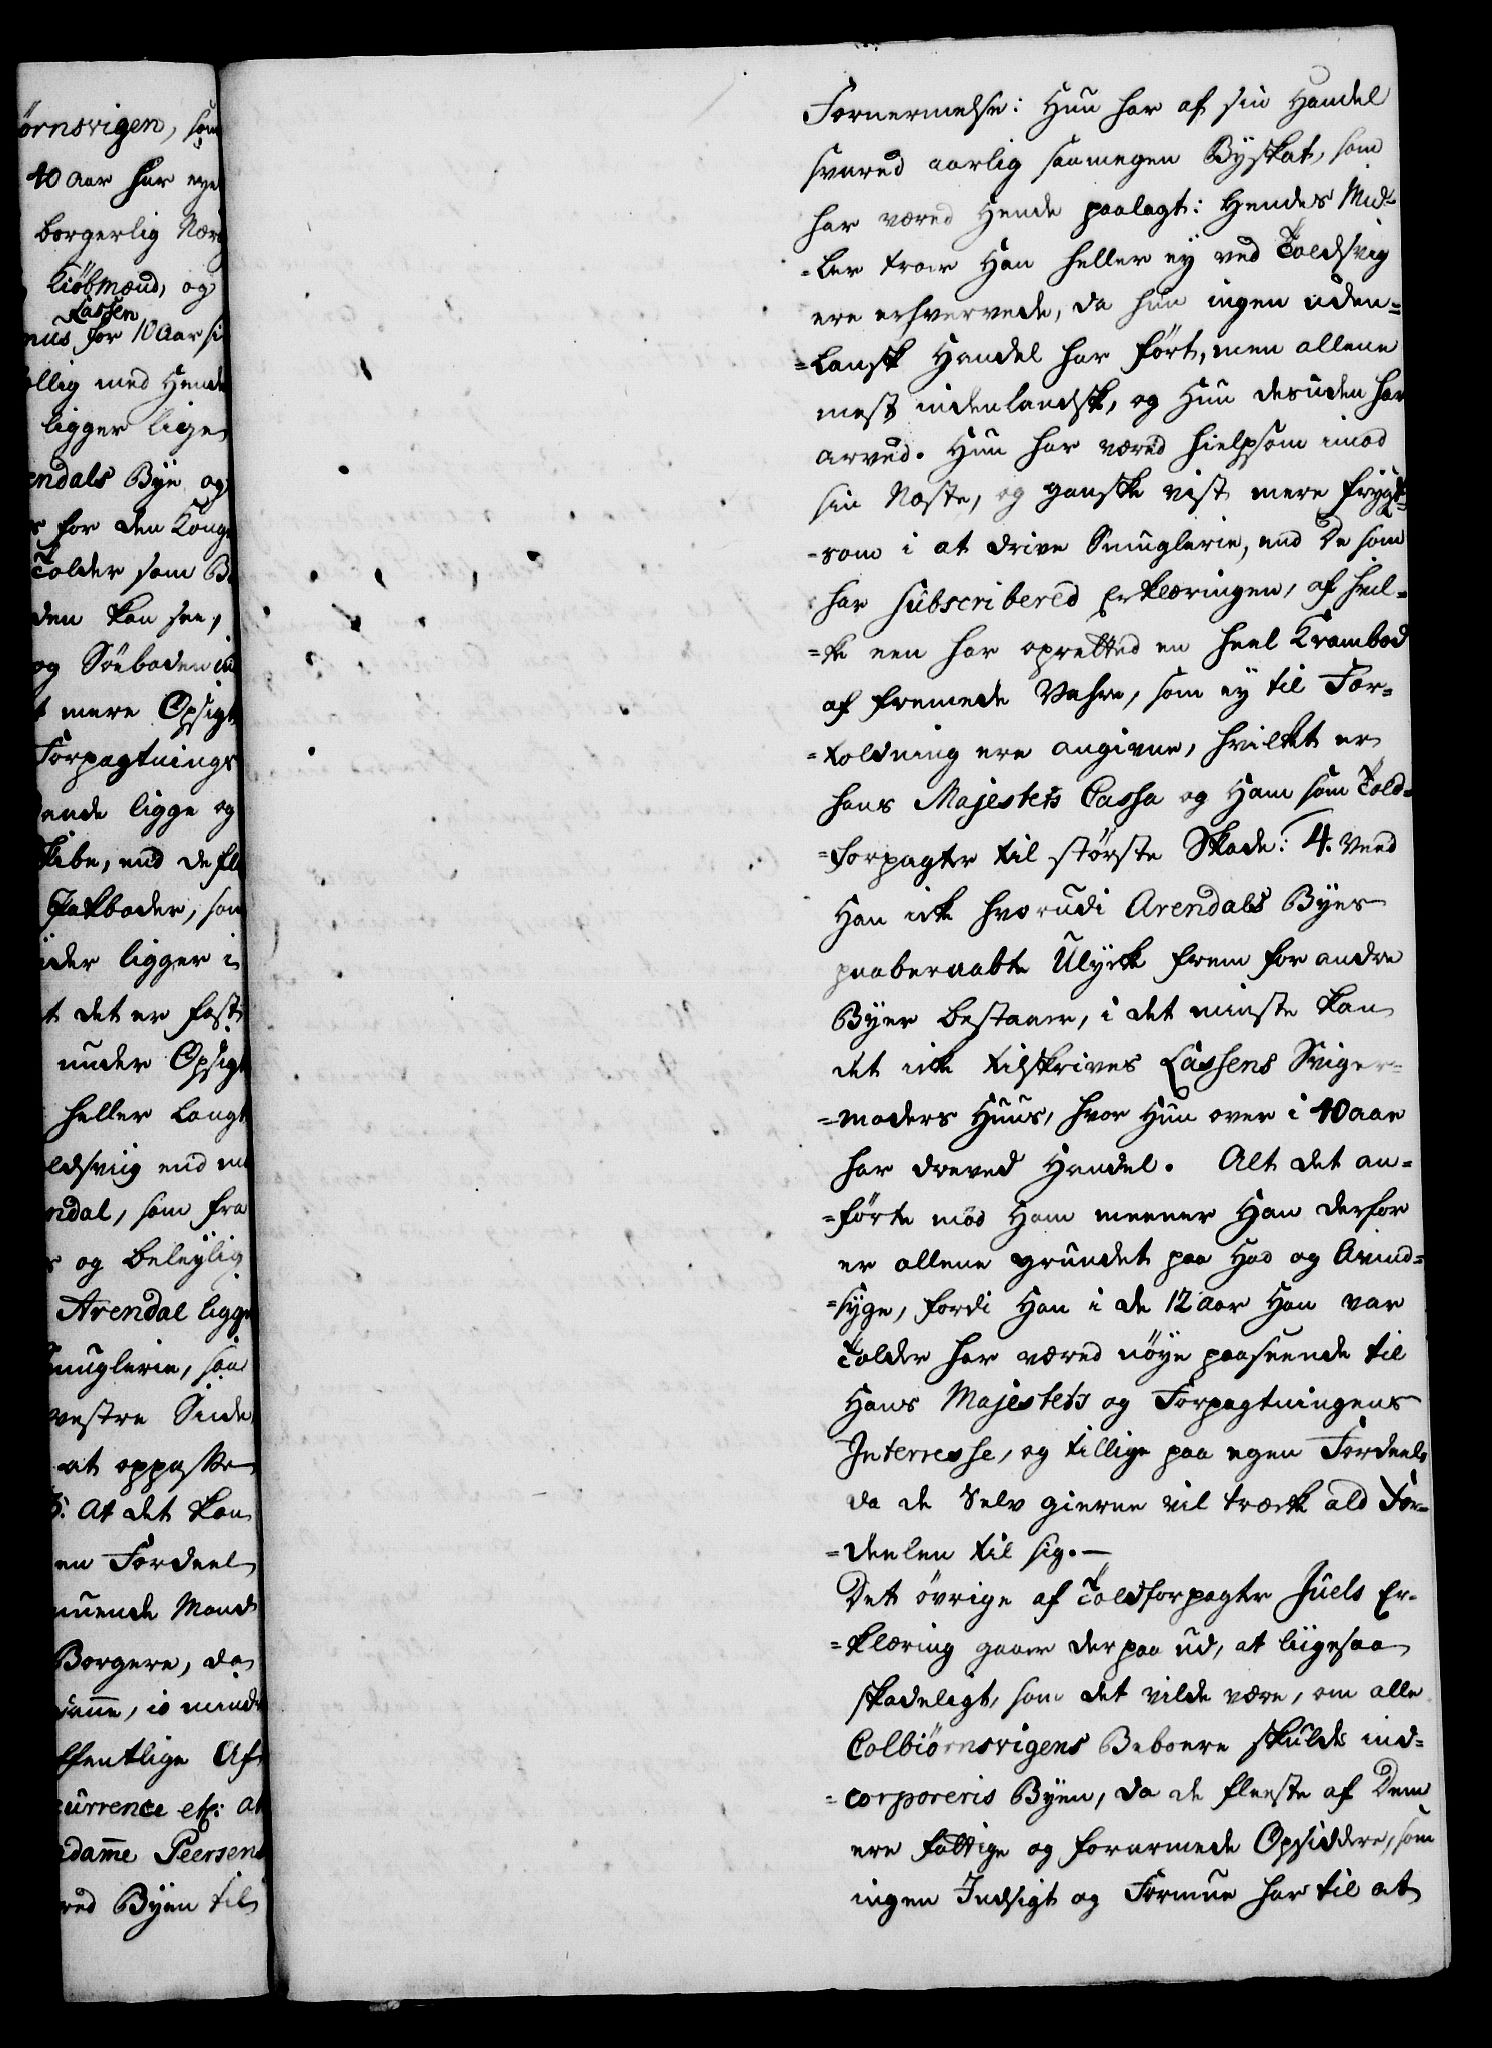 örnsvigen, som
40 Aar har eye
borgerlig Nær
Kiöbmænd, og
Lassen
nus for 10 Aar si
ellig med Hende
ligger lige
endals Bye og
for den Konge
Tolder som B
den kan see,
og Söeboden
mere Opsigt
Forpagtnings
ende ligge og
kibe, end de fle
Pakboder, som
ider ligger i
t det er fast
under Opsigt
heller langt
oldsviig end
ndal, som fra
og beleylig
Arendal ligge
Smuglerie, saa
vestre Side
at oppasse
5. At det kan
en Fordeel
nuende Mand
Borgere, da
io mind
ffentlige Af
currence etc: at
adame Peersens
ved Byen til
Fornermelse: Hun har af sin Handel
svared aarlig saamegen Byskat, som
har væred Hende paalagt: Hendes Mid-
-ler troer Han heller ey ved Toldsvig
ere erhvervede, da hun ingen uden=
=lansk Handel har ført, men allene
mest indenlandsk, og Hun desuden har
arved. Hun har væred hielpsom imod
sin Næste, og ganske vist mere frygt=
=som i at drive Smuglerie, end De som
har subscribered Erklæringen, af hvil=
=ke een har opretted en heel Krambod
af fremede Vahre, som ey til For=
=toldning ere angivne, hvilket er
Hans Majestets Cassa og Ham som Told=
=forpagter til største Skade: 4. Veed
Han icke hvorudi Arendals Byes
paaberaabte Ulyck frem for andre
Byer bestaaer, i det minste kan
det icke tilskrives Lassens Sviger=
=moders Huus, hvor Hun over i 40 aar
har dreved Handel. Alt det an=
=førte mod Ham meener Han derfor
er allene grundet paa Had og Avind=
=syge, fordi Han i de 12 aar Han var
Tolder har væred nöye paaseende til
Hans Majestets og Forpagtningens
Interresse, og tillige paa egen Fordeel,
da de Selv gierne vil træcke ald For=
=deelen til sig.—
Det övrige af Toldforpagter Juels Er-
=klæring gaaer derpaa ud, at liigesaa
skadeligt, som det vilde være, om alle
Colbiörnsvigens Beboere skulde ind=
=corporeris Byen, da de fleeste af Dem
ere fattige og forarmede Opsiddere, som
ingen Indsigt og Formue har til at